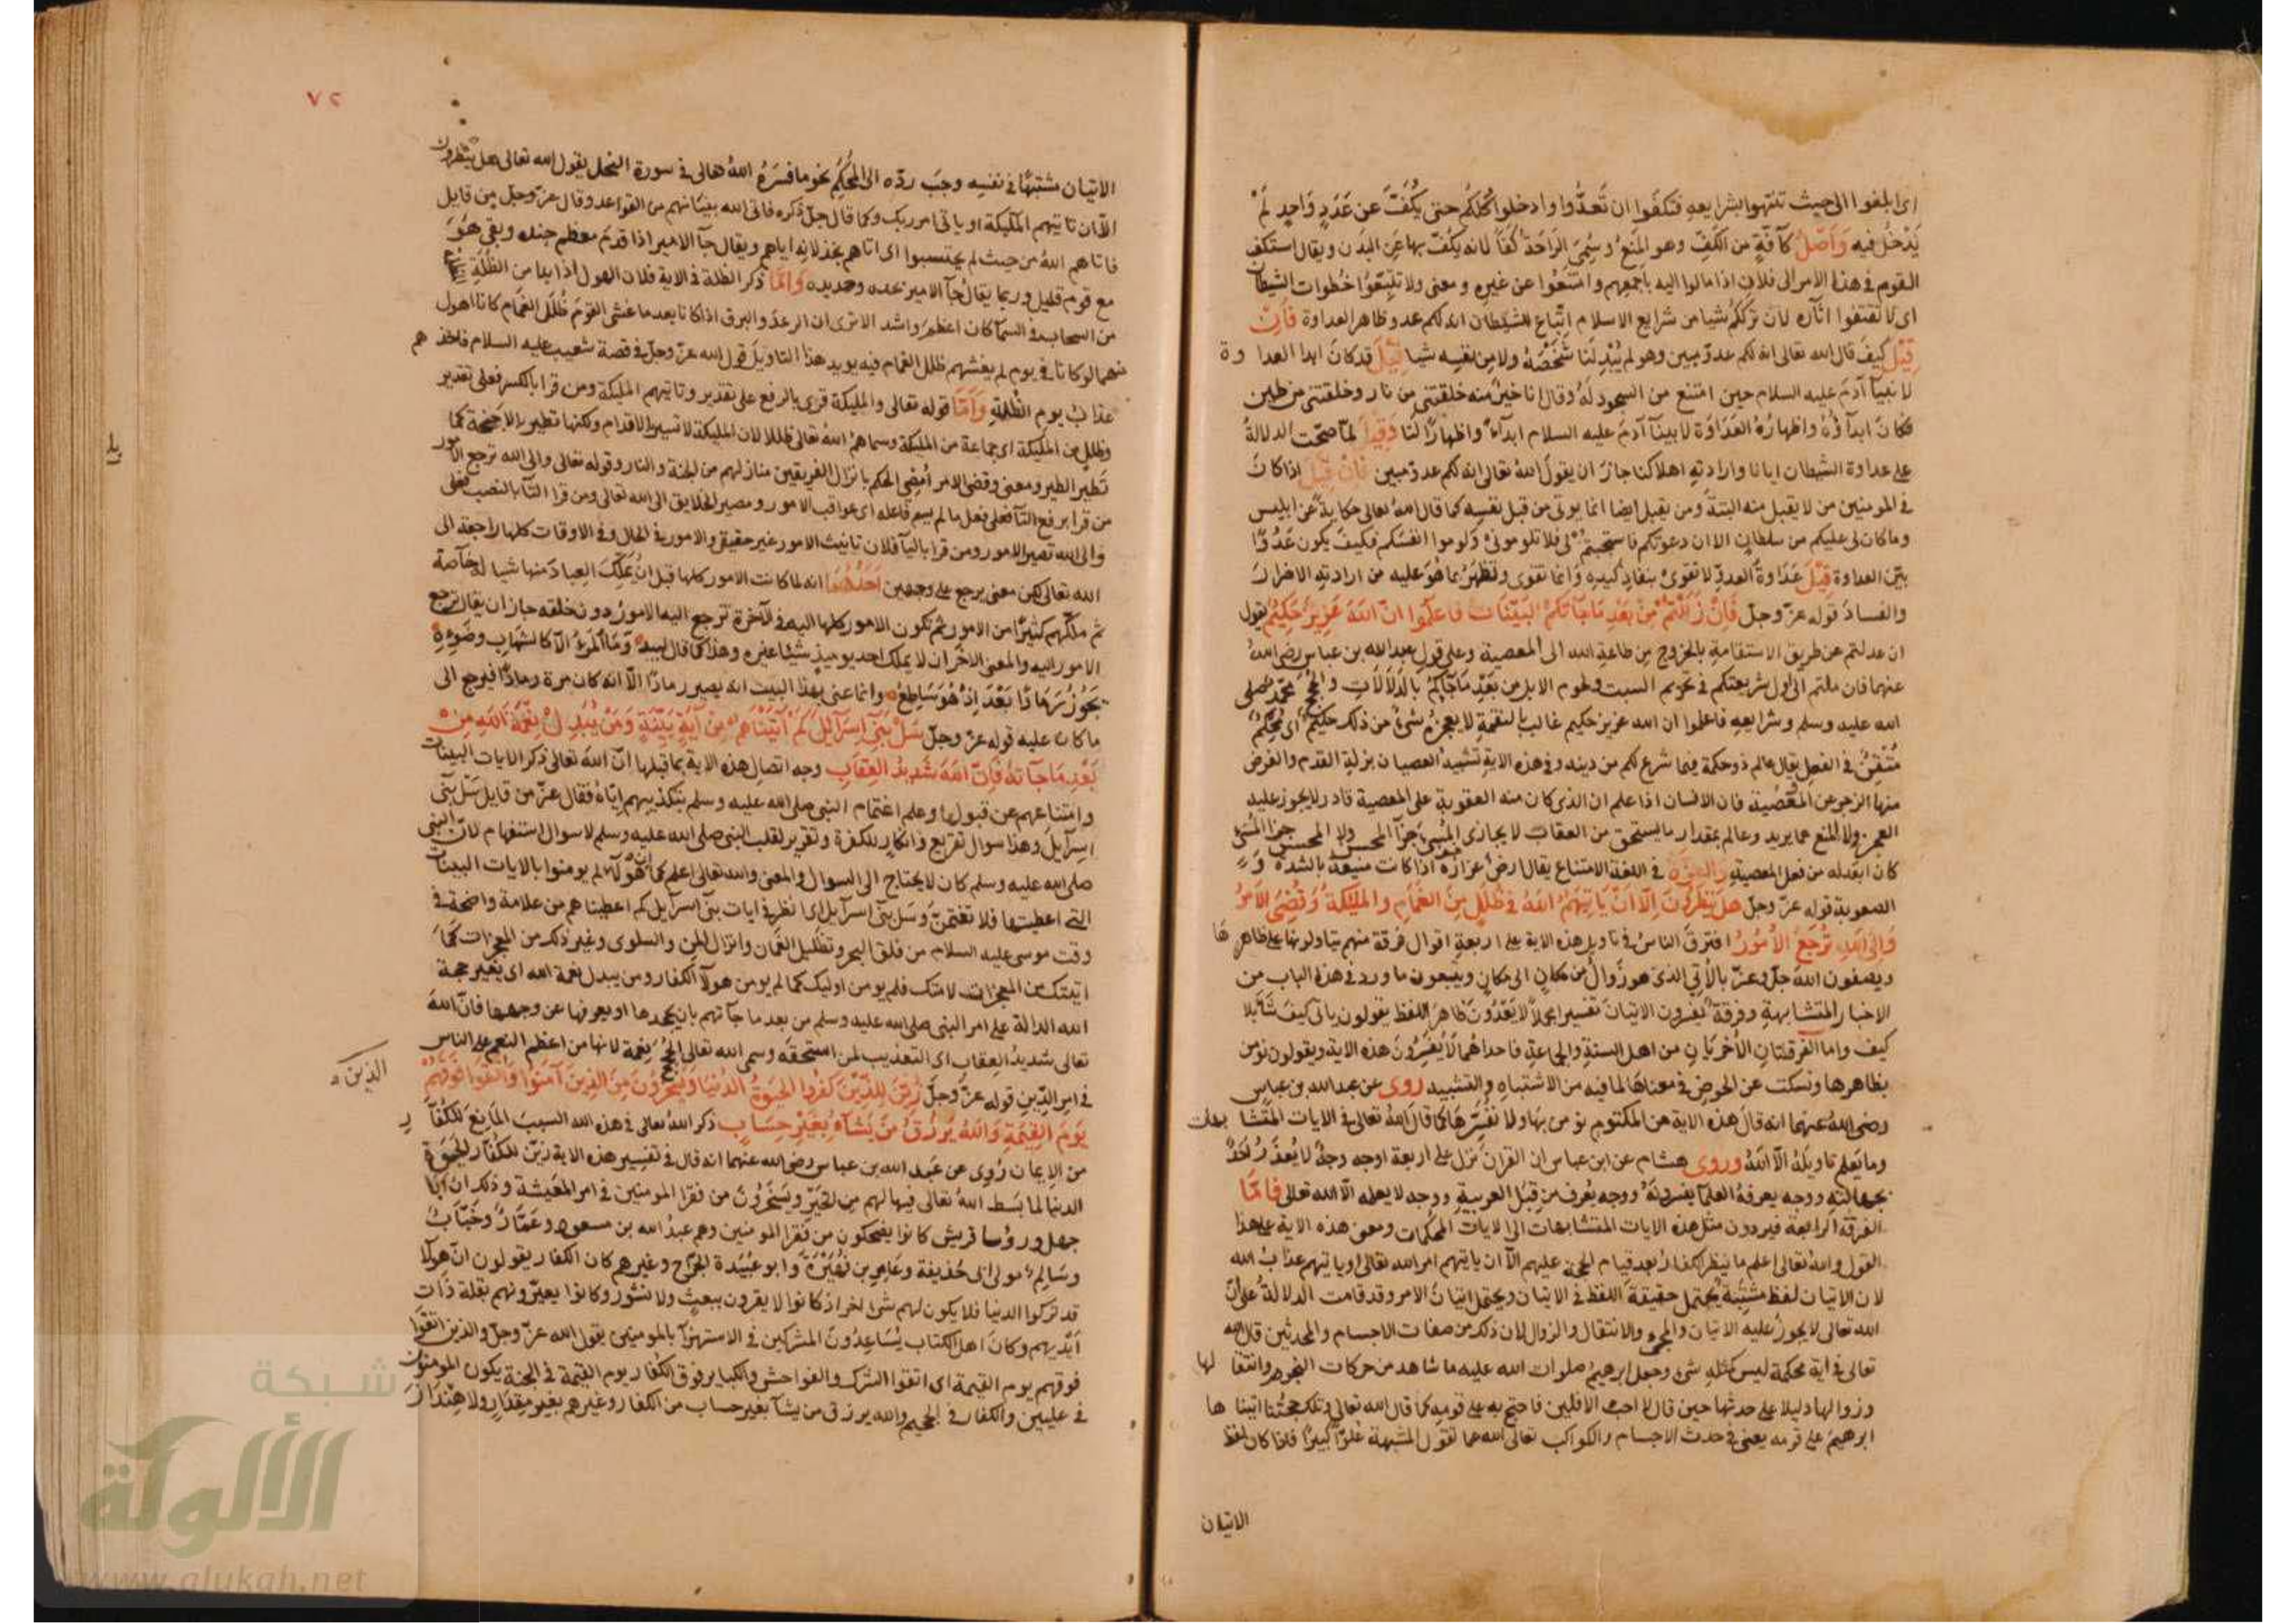 اى ابلغوا الى حيث تنتهوا لشرايعه فتكفوا ان تعدّوا وادخلوا كلكم حتى يكفّ عن عدد واحد لم
يدخل فيه وَأصلُ كآفّةٍ من الكفّ وهو المنع وسمى الراحة كفا لانه يكفّ بها عن البدن ويقال استكف
القوم فى هذا الامر الى فلان اذا مالوا اليه باجمعهم وامتنعوا عن غيره ومعنى ولا تتبعوا خطوات الشيطان
اى لا تقتفوا اثآره لان ترككم شيا من شرايع الاسلام اتباع للشيطان انه لكم عدو ظاهر العداوة فَاِنْ
قِيْلَ كيف قال الله تعالى انه لكم عدو مبين وهو لم يُبْدِ لنا شخصَه ولا من نفسه شيا قِيْلَ قد كان ابدا العدا وة
لابينآ آدم عليه السلام حين امتنع من السجود له وقال انا خير منه خلقتنى من نار وخلقته من طين
فكان ابدآؤه واظهاره العداوة لابينآ آدم عليه السلام ابدآءً واظهارًا لنا وَقِيْلَ لمّا صحّت الدلالة
على عداوة الشيطان ايانا وارادته اهلاكنا جاز ان يقول الله تعالى انه لكم عدوّ مبين فَاِنْ قِيْلَ اذا كان
فى المومنين من لا يقبل منه البتة ومن يقبل ايضا انما يوتى من قبل نفسه كما قال الله تعالى حكاية عن ابليس
وما كان لى عليكم من سلطان الا ان دعوتكم فاستجبتم لى فلا تلومونى ولوموا انفسكم فكيف يكون عَدُوًّا
بيّن العداوة قِيْلَ عداوة العدوّ لا تقوى بنفاذ كيده وانما تقوى وتظهر بما هو عليه من ارادته الاضرار
والفساد قوله عزّ وجلّ فَاِنْ زَلَلْتُمْ مِنْ بَعْدِ مَا جَآتْكُمُ البَيِّنَات فَاعلموا انّ اللهَ عَزِيزٌ حَكِيمٌ يقول
ان عدلتم عن طريق الاستقامة بالخروج من طاعة الله الى المعصية وعلى قول عبد الله بن عباس رضى الله
عنهما فان ملتم الى اول شريعتكم فى تحريم السبت ولحوم الابل من بعد ما جآكم بالدلالات والحجج محمّد صلى
الله عليه وسلم وشرايعه فاعلموا ان الله عزيز حكيم غالب بالنقمة لا يعجزه شىءٌ من ذلك حكيم اى مُحكِمٌ
مُتقِنٌ فى الفعل يقال عالم ذو حكمة فيما شرع لكم من دينه وفى هذه الاية تشبيه العصيان بزلة القدم والغرض
منها الزجر عن المعصية فان الانسان اذا علم ان الذى كان منه العقوبة على المعصية قادر لا يجوز عليه
العجز ولا المنع عما يريد وعالم بمقدار ما يستحق من العقاب لا يجازى المسئ جزآ المحسن ولا المحسن جزآ المسئ
كان ابعد له من فعل المعصية والعِزّة فى اللغة الامتناع يقال ارض عزازة اذا كانت منيعة بالشدة و
الصعوبة قوله عزّ وجلّ هَلْ يَنْظُرُونَ اِلّا اَنْ يَأتِيَهُمُ اللهُ فى ظُلَلٍ مِنَ الغَمَامِ والملٰيكةُ وَقُضِىَ الاَمْرُ
وَاِلى اللهِ تُرْجَعُ الاُمُورُ افترق الناس فى تاويل هذه الاية على اربعة اقوال فرقة منهم يتاولونها على ظاهر ها
ويصفون الله جلّ وعزّ بالاتى الذى هو زوالٌ من مكان الى مكان ويتبعون ما ورد فى هذه الباب من
الاخبار المتشابهة وفرقة يفسرون الاتيان تفسيرا مجملا لا يعدون ظاهر اللفظ يقولون ياتى كيف شآ بلا
كيف واما الفرقتان الاخريان من اهل السنة والجماعة فاحداهما لا يفسّرون هذه الاية ويقولون نؤمن
بظاهرها ونسكت عن الخوض فى معناها لما فيه من الاشتباه والتشبيه روى عن عبد الله بن عباس
رضى الله عنهما انه قال هذه الاية من المكتوم نو من بها ولا نفسّرها كما قال الله تعالى فى الايات المتشا بهات
وما يعلم تاويله الّا اللهُ وروى هشام عن ابن عباس ان القران نزل على اربعة اوجه وجهٌ لا يُعذَر اَحَدٌ
بجهالته ووجه يعرفه العلمآ يفسرونه ووجه يُعرف من قِبَل العربية ووجه لا يعلمه الّا الله تعالى فامّا
الفرقة الرابعة فيردون مثل هذه الايات المتشابهات الى الايات المحكمات ومعنى هذه الاية على هذا
القول والله تعالى اعلم ما ينظر الكفار بعد قيام الحجة عليهم الّا ان ياتيهم امر الله تعالى او ياتيهم عذاب الله
لان الاتيان لفظ مشتبه يحتمل حقيقة اللفظ فى الاتيان ويحتمل اتيان الامر وقد قامت الدلالة على انّ
الله تعالى لا يجوز عليه الاتيان والمجىء والانتقال والزوال لان ذلك من صفات الاجسام والمحدثين قال الله
تعالى فى اية محكمة ليس كمثله شىء وجعل ابرهيم صلوات الله عليه ما شاهد من حركات النجوم وانتقا لها
وزوالها دليلا على حدثها حين قال لا احب الافلين فاحتج به على قومه كما قال الله تعالى وتلك حجّتنا اتينا ها
ابرهيم على قومه يعنى فى حدث الاجسام والكواكب تعالى الله عما تقول المشبهة علوّا كبيرًا فاذا كان لفظ
الاتيان
٧٢
الاتيان مشتبهًا فى نفسه وجب ردّه الى المُحكَم نحو ما فسّره الله تعالى فى سورة النحل بقول الله تعالى هل ينظرون
الّا ان تاتيهم الملٰيكة او ياتى امر ربك وكما قال جلّ ذكره فاتى الله بنيانهم من القواعد وقال عزّ وجلّ من قايل
فاتاهم الله من حيث لم يحتسبوا اى اتاهم بخذلانه اياهم ويقال جآ الامير اذا قدم معظم جنده وبقى هو
مع قوم قليل وربما يقال جآ الامير بعدده وحديده وَاَنّما ذكر الظلة فى الاية فلان الهول اذا بدا من الظُلَةِ
من السحاب فى السمآ كان اعظم واشد الا ترى ان الرعد والبرق اذا كانا بعد ما غشى القومَ ظُلَلُ الغَمَام كانا اهول
منهما لو كانا فى يوم لم يغشهم ظلل الغمام فيه يويد هذا التاويل قول الله عزّ وجلّ فى قصة شعيب عليه السلام فاخذ هم
عذاب يوم الظُلَةِ وَاَمّا قوله تعالى والمليكة قرى بالرفع على تقدير وتاتيهم المليكة ومن قرا بالكسر فعلى تقدير
وظلل من الملٰيكة اى جماعة من المليكة وسماهم الله تعالى ظللا لان المليكة لا تسير بالاقدام ولكنها تطير بالاجنحة كما
تطير الطير ومعنى وقضى الامر اُمضِى الحكم بانزال الفريقين منازلهم من الجنة والنار وقوله تعالى والى الله ترجع الامور
من قرا برفع التآ فعلى فعل ما لم يسم فاعله اى عواقب الامور ومصير الخلايق الى الله تعالى ومن قرا التآ بالنصب فعلى
والى الله تصير الامور ومن قرا باليآ فلان تانيث الامور غير حقيقى والامور فى الحال وفى الاوقات كلها راجعة الى
الله تعالى لكن معنى يرجع على وجهين اَحَدُهُمَا انه لما كانت الامور كلها قبل ان يُمَلِّك العباد منها شيا له خآصة
ثم ملّكهم كثيرًا من الامور ثم تكون الامور كلها اليه فى الآخرة ترجع اليه الامور دون خلقه جاز ان يقال ترجع
الامور اليه والمعنى الاخر ان لا يملك احد يوميذٍ شيئا غيره وهذا كما قال لبيد وَمَا المَرْءُ الّا كالشهاب وضَوْءِهِ
يَحُوْرُ رَمَادًا بَعْدَ اِذْ هُوَ سَاطِعُ وانما عنى بهذا البيت انه يصير رمادًا الّا انه كان مرة رمادًا فيرجع الى
ما كان عليه قوله عزّ وجلّ سَلْ بَنِى اِسْرآيلَ كَمْ آتَيْنَاهُمْ مِنْ آيَةٍ بَيِّنَةٍ وَمَنْ يُبَدِلْ نِعْمَةَ اللهِ مِنْ
بَعْدِ مَا جَآتهُ فَاِنّ اللهَ شَدِيدُ العِقَابِ وجه اتصال هذه الاية بما قبلها انّ الله تعالى ذكر الايات البينات
وامتناعهم عن قبولها وعلم اغتمام النبى صلى الله عليه وسلم بتكذيبهم اياه فقال عزّ من قايل سَل بنى
اسرآيل وهذا سوال تقريع وانكار للكفرة وتقرير لقلب النبى صلى الله عليه وسلم لا سوال استفهام لانّ النبى
صلى الله عليه وسلم كان لا يحتاج الى السوال والمعنى والله تعالى اعلم كما ان هولآ لم يومنوا بالايات البينات
التى اعطيتها فلا تغتمنّ وسَل بنى اسرآيل اى انظر فى ايات بنى اسرآيل كم اعطيناهم من علامة واضحة فى
وقت موسى عليه السلام من فلق البحر وتظليل الغمام وانزال المن والسلوى وغير ذلك من المعجزات كما
اتيتك من المعجزات لامتك فلم يومن اوليك كما لم يومن هولآ الكفار ومن يبدل نعمة الله اى يغير حجة
الله الدالة على امر النبى صلى الله عليه وسلم من بعد ما جآتهم بان يجحدها او يصرفها عن وجهها فانّ الله
تعالى شديدُ العِقاب اى التعذيب لمن استحقه وسمى الله تعالى الحجج نِعْمة لانها من اعظم النعم على الناس
فى امر الدّين قوله عزّ وجلّ زُيِّنَ لِلّذِيْنَ كَفَرُوا الحَيٰوةُ الدُنْيَا وَيَسْخَرُوْنَ مِنَ الذِينَ آمَنُوْا وَاتَّقَوا فَوْقَهُمْ
الذين
يَوْمَ القِيٰمَةِ وَاللهُ يَرْزُقُ مَنْ يَشآءُ بِغَيْرِ حِسَابٍ ذكر الله تعالى فى هذه الله السبب المانع للكفآ ر
من الايمان رُوِى عن عبد الله بن عباس رضى الله عنهما انه قال فى تفسير هذه الاية زيّن للكفار الحيوة
الدنيا لما بسط الله تعالى فيها لهم من الخير ويَسخرون من فقرا المومنين فى امر المعيشة وذكر ان ابا
جهل وروسا قريش كانوا يضحكون من فقرا المومنين وهم عبد الله بن مسعود وعَمّارٌ وخَبّابٌ
وسالم مولى ابى حُذيفة وعامر بن فُهَيْرَة وابو عبيدة الجرّاح وغيرهم كان الكفار يقولون انّ هولآ
قد تركوا الدنيا فلا يكون لهم شىء اخر اذ كانوا لا يقرون ببعث ولا نشور وكانوا يعيّرونهم بقلة ذات
اَيْديهم وكان اهل الكتاب يُسَاعِدُونَ المشركين فى الاستهزآ بالمومنين يقول الله عزّ وجلّ والذين اتقوا
فوقهم يوم القيمة اى اتقوا الشرك والفواحش والكباير فوق الكفار يوم القيمة فى الجنة يكون المومنون
فى عليين والكفار فى الجحيم والله يرزق من يشآ بغير حساب من الكفار وغيرهم بغير مِقدَارٍ ولا هِنْدَاز
شبكة
الألوكة
www.alukah.net